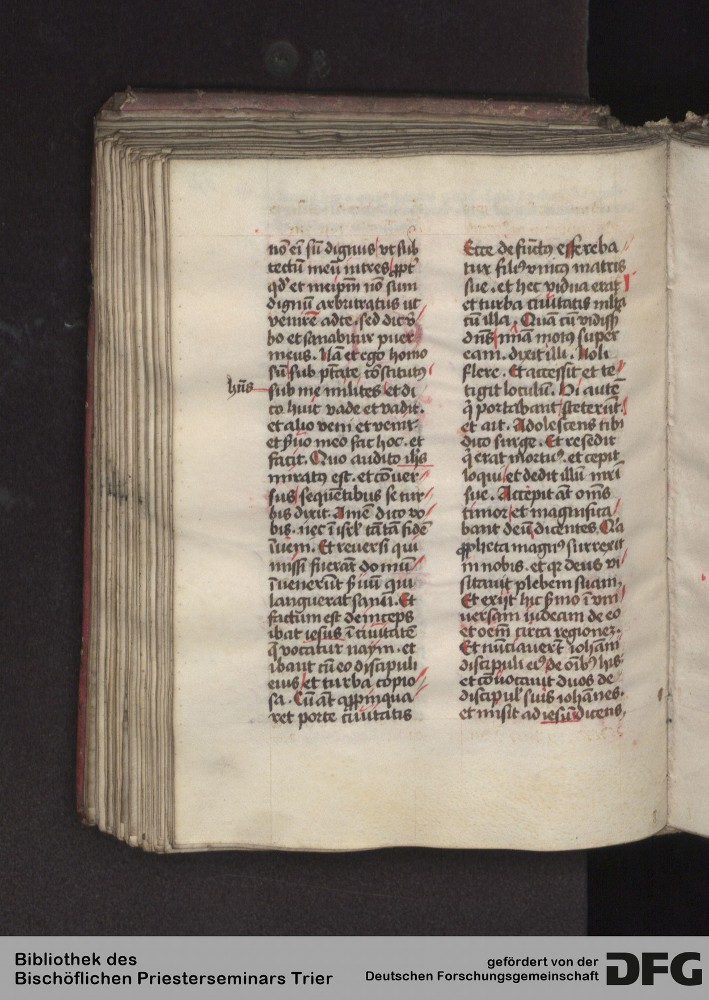 nō eī sū dignus ut sub
tectum meū intres ꝓpt̄
qđ et meip̄m nō sum
dignū arbitratus ut
venirē ad te. sed dic v̄
bo et sanabitur puer
meus. Nā et ego homo
sū sub ptāte cōstitutꝰ
hn̄s sub me milites et di
co huic vade et vadit.
et alio veni et venit.
et ẜuo meo fac hoc. et
facit. Quo audito ih̄s
miratꝰ est. et cōuer
sus sequētibus se tur
bis dixit. Amē dico vo
bis. nec ī isrl̄ tātā fidē
īueni. Et reuersi qui
missi fuerāt domū
īuenerūt ẜuū qui
languerat sanū. Et
factum est deinceps
ibat iesus ī ciuitatē
q̄ vocatur naym. et
ibant cū eo discipuli
eius et turba copio
sa. Cū āt appīnqua
ret porte ciuitatis
Ecce defunctꝰ effereba
tur filiꝰ vnicꝰ matris
sue. et hec vidua erat
et turba ciuitatis ml̄ta
cū illa. Quā cū vidiss̄
dn̄s mīa motꝰ super
eam. dixit illi. Noli
flere. Et accessit et te
tigit loculū. Hi autē
q̄ portabant steterūt.
et ait. Adolescens tibi
dico surge. Et resedit
q̄ erat mortuꝰ. et cepit
loqui et dedit illū mr̄i
sue. Accepit āt om̄s
timor et magnifica
bant deū dicentes. Q̄a
ꝓpheta magnꝰ surrexit
in nobis. et qꝫ deus vi
sitauit plebem suam.
Et exijt hic ẜmo ī vni
uersam iudeam de eo
et oēm circa regionez.
Et nūciauerūt iohāni
discipuli eiꝰ de oībꝰ hijs
et cōuocauit duos de
discipul̄ suis iohānes.
et misit ad iesū dicens.
Bibliothek des
Bischöflichen Priesterseminars Trier
gefördert von der
Deutschen Forschungsgemeinschaft DFG